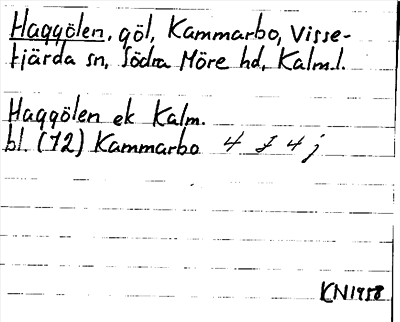 Haggölen, göl, Kammarbo, Visse-
fjärda sn, Södra Möre hd, Kalm.l.
Haggölen ek Kalm.
bl. (72) Kammarbo 4 F 4 j
KN1958